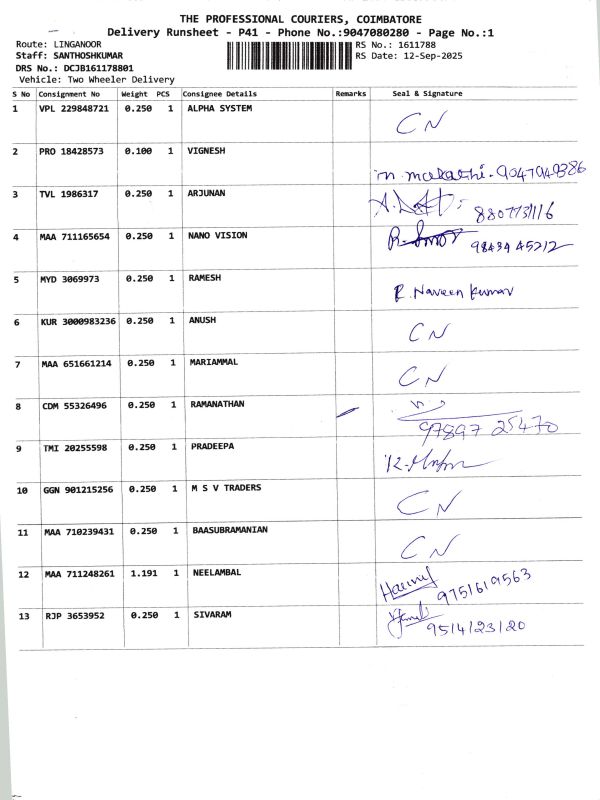 THE PROFESSIONAL COURIERS, COIMBATORE
Delivery Runsheet - P41 - Phone No.:9047080280 - Page No.:1
Route: LINGANOOR
RS No.: 1611788
Staff: SANTHOSHKUMAR
RS Date: 12-Sep-2025
DRS No.: DCJB161178801
Vehicle: Two Wheeler Delivery
S No Consignment No Weight PCS Consignee Details Remarks Seal & Signature
1 VPL 229848721 0.250 1 ALPHA SYSTEM CN
2 PRO 18428573 0.100 1 VIGNESH 9047949386
3 TVL 1986317 0.250 1 ARJUNAN
4 MAA 711165654 0.250 1 NANO VISION 98434 45212
5 MYD 3069973 0.250 1 RAMESH R. Naveen Kumar
6 KUR 3000983236 0.250 1 ANUSH CN
7 MAA 651661214 0.250 1 MARIAMMAL CN
8 CDM 55326496 0.250 1 RAMANATHAN 97897 25470
9 TMI 20255598 0.250 1 PRADEEPA
10 GGN 901215256 0.250 1 M S V TRADERS CN
11 MAA 710239431 0.250 1 BAASUBRAMANIAN CN
12 MAA 711248261 1.191 1 NEELAMBAL 9751619563
13 RJP 3653952 0.250 1 SIVARAM 9514123120